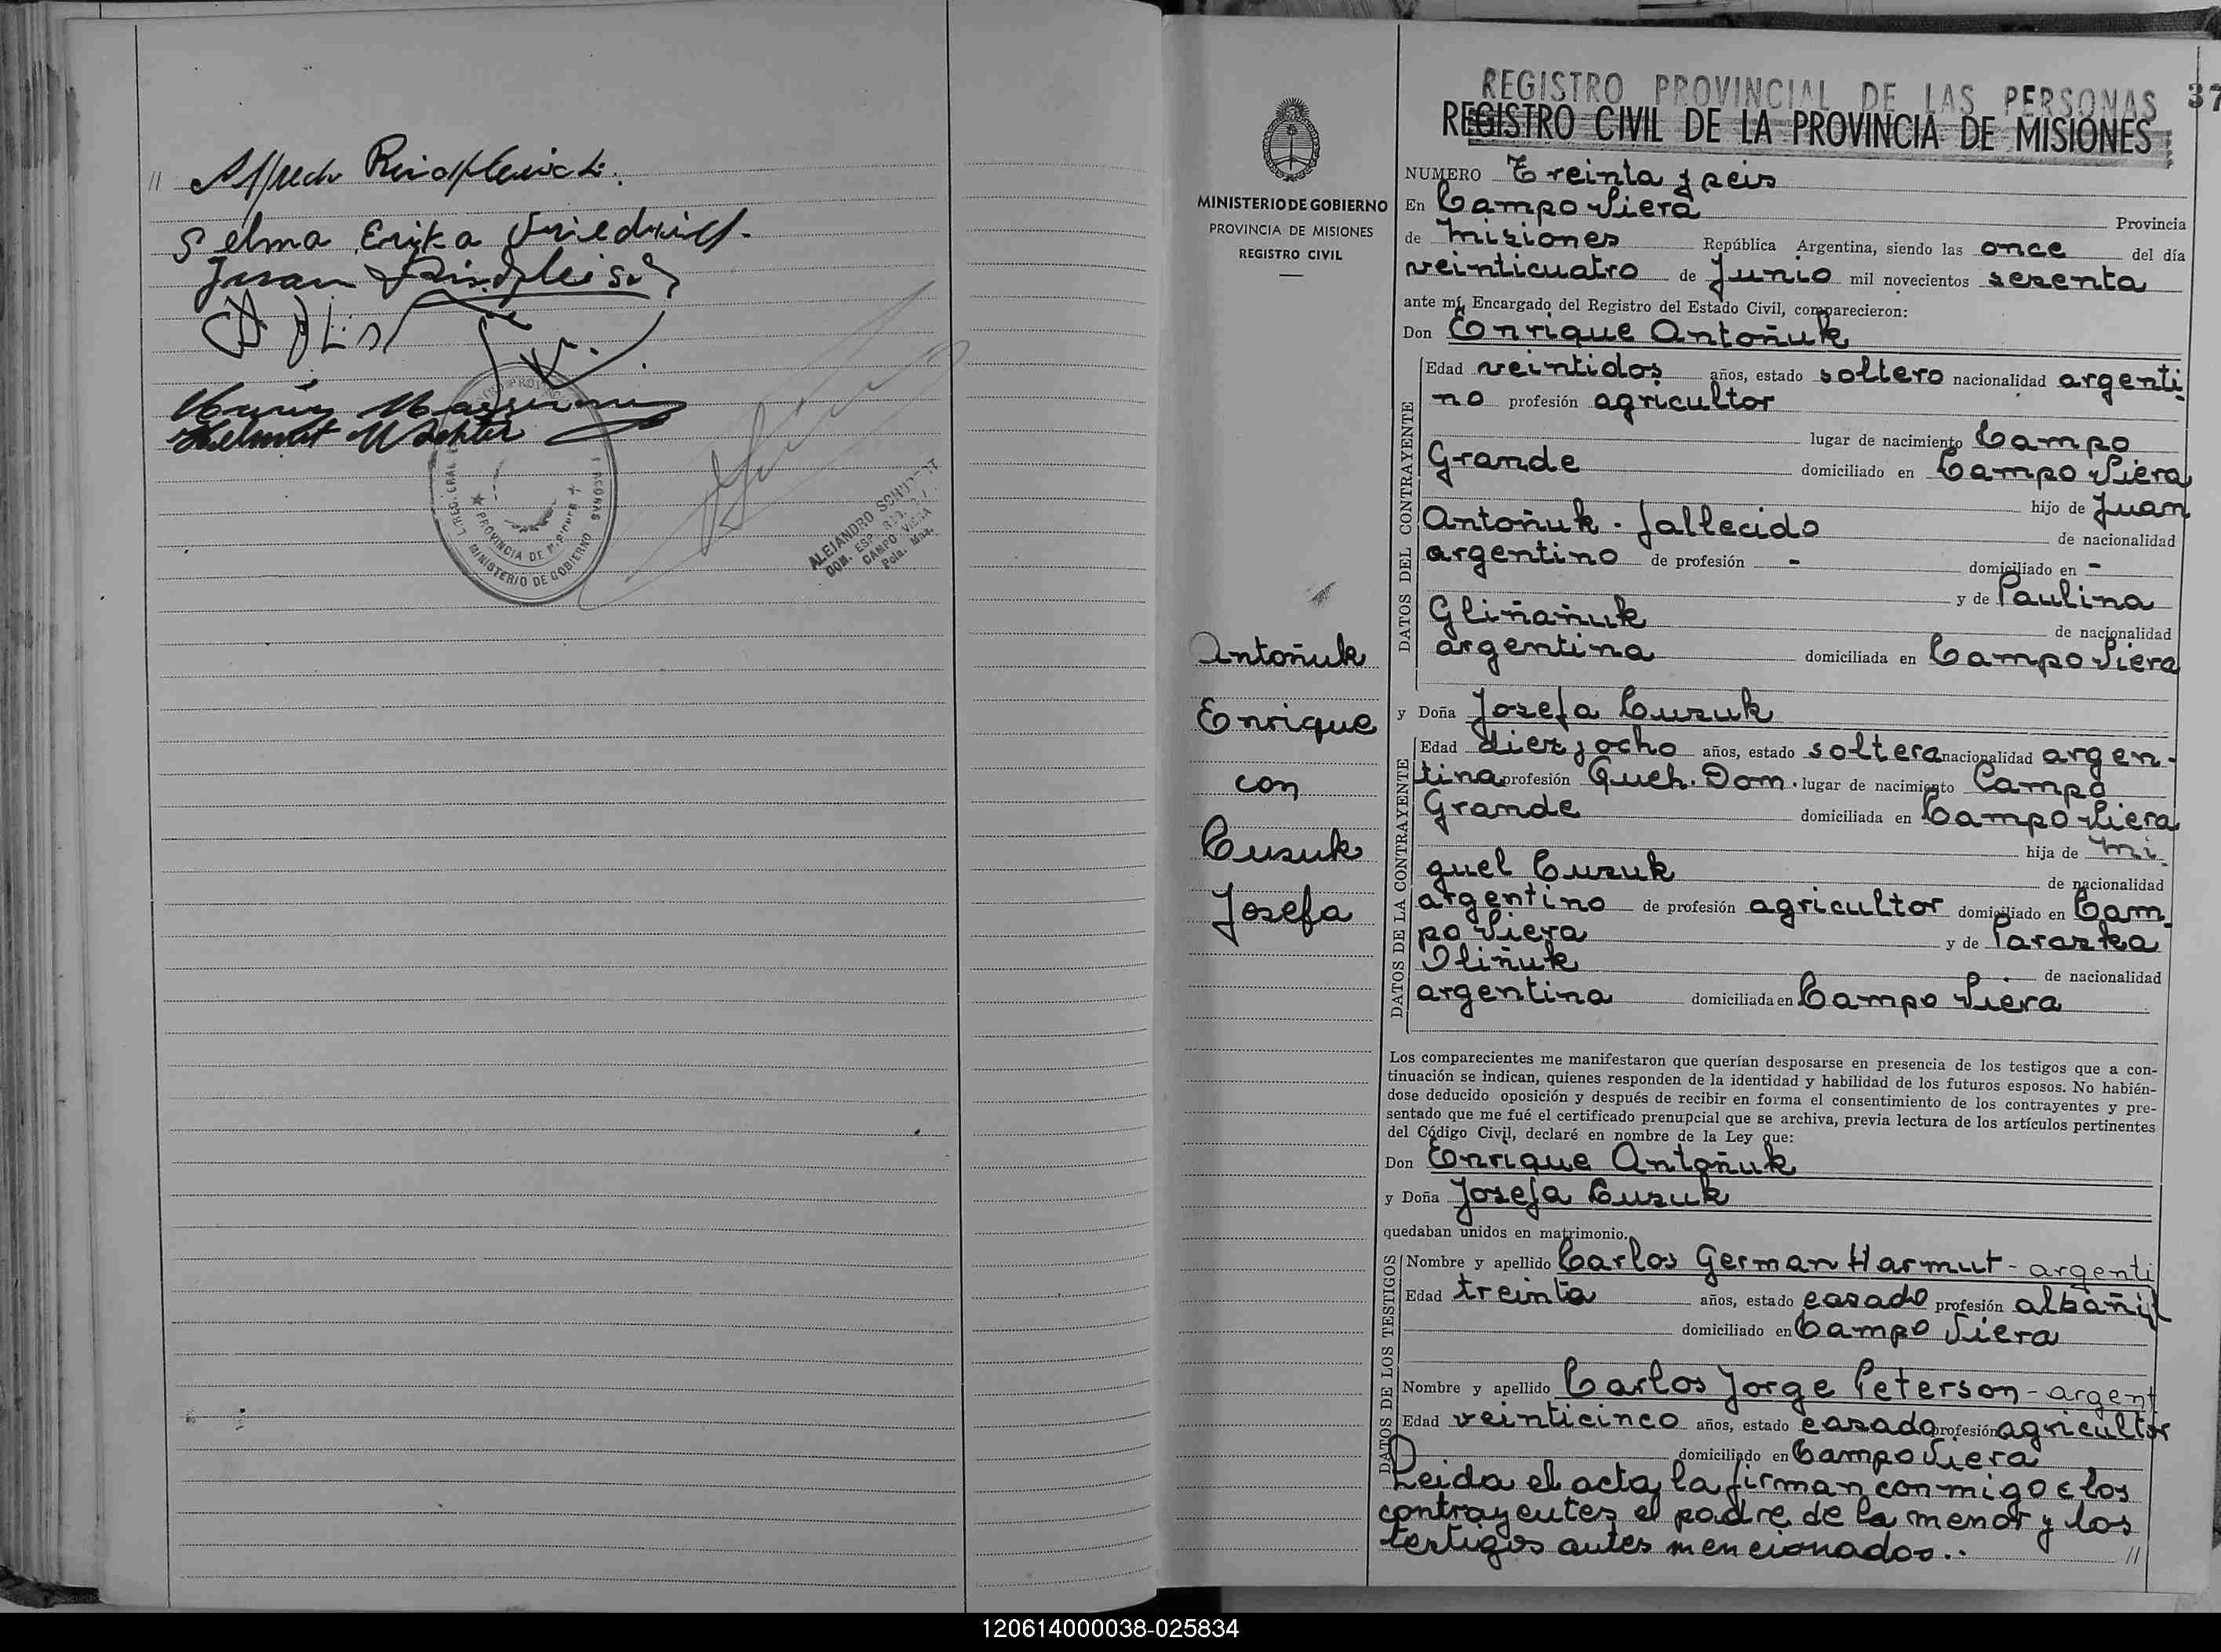 // Alfredo Rindfleisch.
Selma Erika Friedrich.
Juan Rindfleisch
Helmut Wachter
MINISTERIO DE GOBIERNO
PROVINCIA DE
ALEJANDRO
CAMPO VIERA
Pcia. Mnes.
37
REGISTRO PROVINCIAL DE LAS PERSONAS
REGISTRO CIVIL DE LA PROVINCIA DE MISIONES
MINISTERIO DE GOBIERNO
PROVINCIA DE MISIONES
REGISTRO CIVIL
Antoñuk
Enrique
con
Cuzuk
Josefa
NUMERO Treinta y seis
En Campo Viera Provincia
de Misiones República Argentina, siendo las once del día
veinticuatro de Junio mil novecientos sesenta
ante mí, Encargado del Registro del Estado Civil, comparecieron:
Don Enrique Antoñuk
DATOS DEL CONTRAYENTE
Edad veintidos años, estado soltero nacionalidad argenti
no profesión agricultor
lugar de nacimiento Campo
Grande domiciliado en Campo Viera
hijo de Juan
Antoñuk - fallecido de nacionalidad
argentino de profesión - domiciliado en -
y de Paulina
Gliñañuk de nacionalidad
argentina domiciliada en Campo Viera
y Doña Josefa Cuzuk
DATOS DE LA CONTRAYENTE
Edad diez y ocho años, estado soltera nacionalidad argen-
tina profesión Queh. Dom. lugar de nacimiento Campo
Grande domiciliada en Campo Viera
hija de Mi
guel Cuzuk de nacionalidad
argentino de profesión agricultor domiciliado en Cam
po Viera y de Paraska
Oliñuk de nacionalidad
argentina domiciliada en Campo Viera
Los comparecientes me manifestaron que querían desposarse en presencia de los testigos que a con-
tinuación se indican, quienes responden de la identidad y habilidad de los futuros esposos. No habién-
dose deducido oposición y después de recibir en forma el consentimiento de los contrayentes y pre-
sentado que me fué el certificado prenupcial que se archiva, previa lectura de los artículos pertinentes
del Código Civil, declaré en nombre de la Ley que:
Don Enrique Antoñuk
y Doña Josefa Cuzuk
quedaban unidos en matrimonio.
DATOS DE LOS TESTIGOS
Nombre y apellido Carlos German Harmut - argenti
Edad treinta años, estado casado profesión albañil
domiciliado en Campo Viera
Nombre y apellido Carlos Jorge Peterson - argent
Edad veinticinco años, estado casado profesión agricultor
domiciliado en Campo Viera
Leida el acta, la firman conmigo los
contrayentes el padre de la menor y los
testigos antes mencionados.. //
120614000038-025834